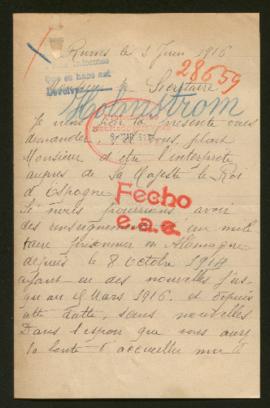 Rumes le 3 Juin 1916
28659
Devolver
Secretaire
Holmstrom
Je viens par la présente vous
demander, vous, plait
Monsieur d'etre l'interprete
aupres de Sa Majeste le Roi
d'Espagne
Fecho
Si nous pourrions avoir
des renseignements un mili
e.a.a.
taire prisonnier en Allemagne
depuis le 8 octobre 1914
ayant eu des nouvelles jus
qu'au 12 Mars 1916. et depuis
cette datte, sans nouvelles
Dans l'espoir que vous aurez
la bonté d'accueillir ma